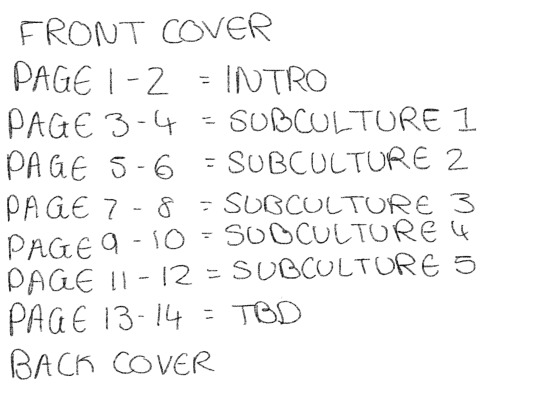 FRONT COVER
PAGE 1-2 = INTRO
PAGE 3-4 = SUBCULTURE 1
PAGE 5-6 = SUBCULTURE 2
PAGE 7-8 = SUBCULTURE 3
PAGE 9-10 = SUBCULTURE 4
PAGE 11-12 = SUBCULTURE 5
PAGE 13-14 = TBD
BACK COVER